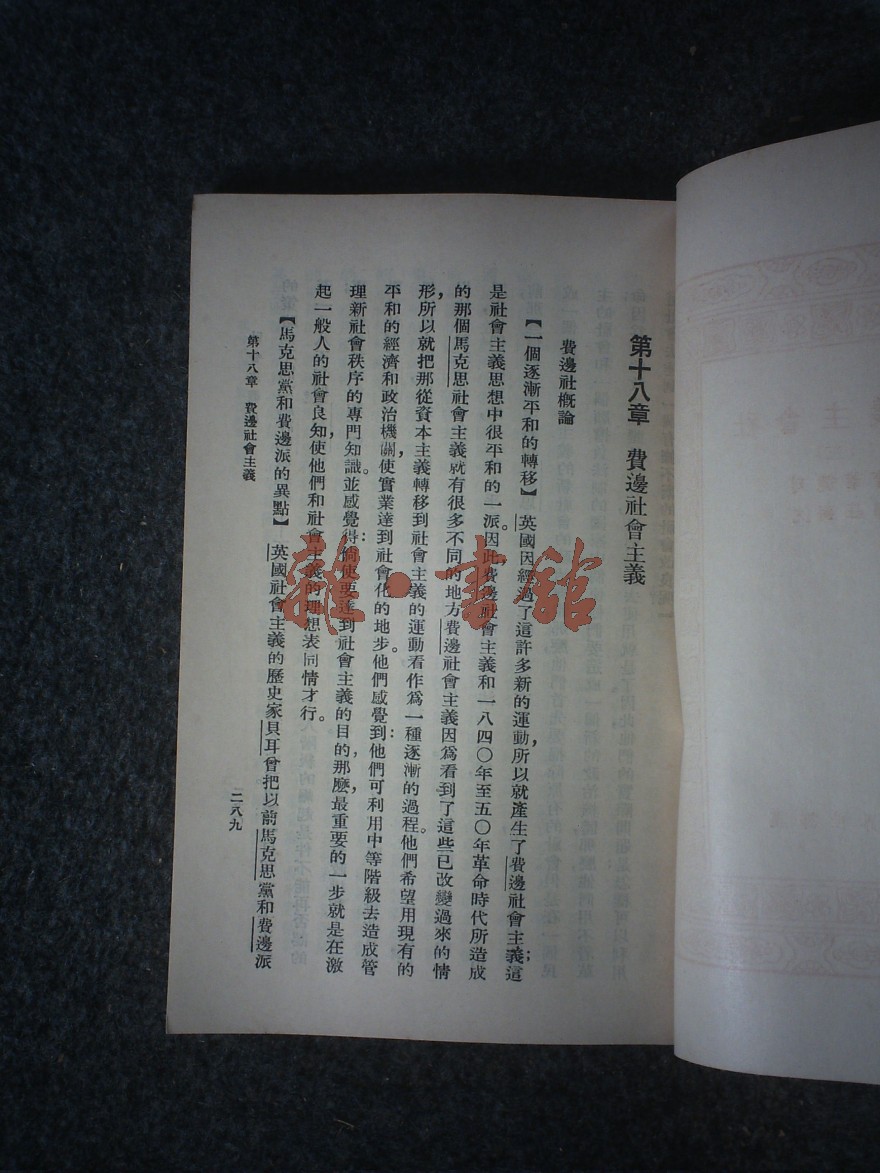 第十八章　費邊社會主義
費邊社概論
【一個逐漸平和的轉移】　英國因經過了這許多新的運動，所以就產生了費邊社會主義；這
是社會主義思想中很平和的一派。因此，費邊社會主義和一八四〇年至五〇年革命時代所造成
的那個馬克思社會主義就有很多不同的地方。費邊社會主義因爲看到了這些已改變過來的情
形，所以就把那從資本主義轉移到社會主義的運動看作爲一種逐漸的過程。他們希望用現有的
平和的經濟和政治機關，使實業達到社會化的地步。他們感覺到：他們可利用中等階級去造成管
理新社會秩序的專門知識。並感覺得：倘使要達到社會主義的目的，那麼，最重要的一步就是在激
起一般人的社會良知，使他們和社會主義的理想表同情才行。
【馬克思黨和費邊派的異點】　英國社會主義的歷史家貝耳曾把以前馬克思黨和費邊派
第十八章　費邊社會主義
二八九
龍·書館